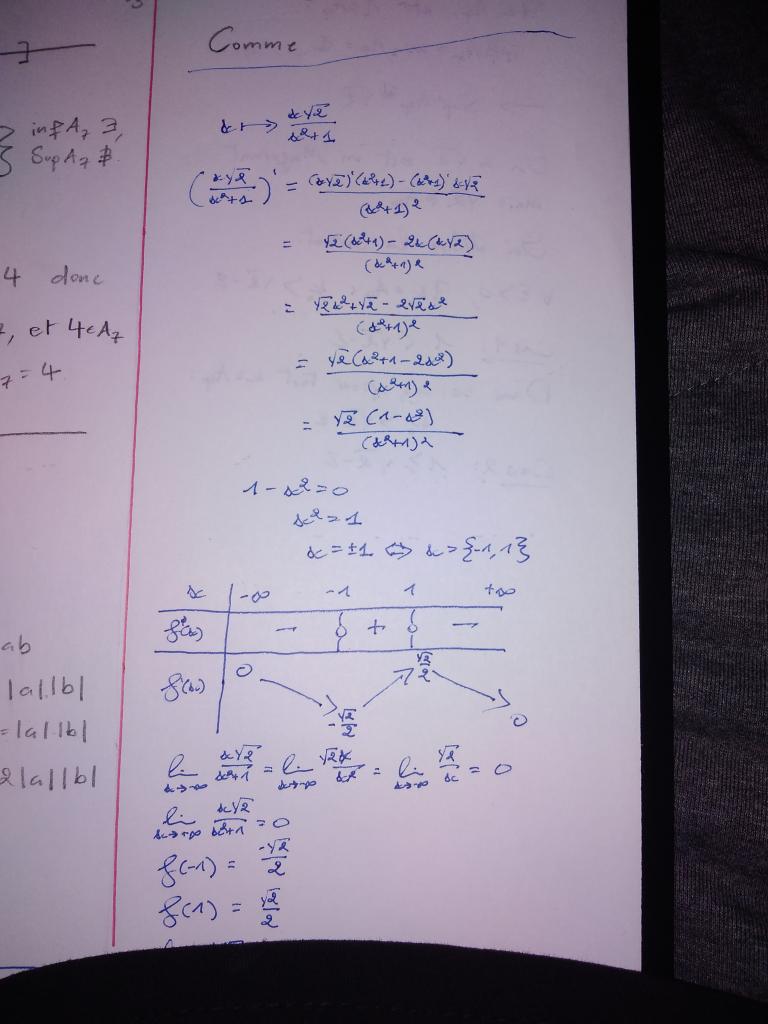 inf A₇ ∃,
Sup A₇ ∄.
4 donc
, et 4∈A₇
₇ = 4
ab
|a|.|b|
= |a|.|b|
2|a||b|
Comme
x ↦ x√2/(x²+1)
(x√2/(x²+1))' = ((x√2)'(x²+1) - (x²+1)' x√2)/(x²+1)²
= (√2(x²+1) - 2x(x√2))/(x²+1)²
= (√2x²+√2 - 2√2x²)/(x²+1)²
= √2(x²+1-2x²)/(x²+1)²
= √2 (1-x²)/(x²+1)²
1-x²=0
x²=1
x=±1 ⇔ x={-1,1}
x -∞ -1 1 +∞
f'(x) - 0 + 0 -
f(x) 0 -√2/2 √2/2 0
lim x→-∞ x√2/(x²+1) = lim x→-∞ √2x/x² = lim x→-∞ √2/x = 0
lim x→+∞ x√2/(x²+1) = 0
f(-1) = -√2/2
f(1) = √2/2